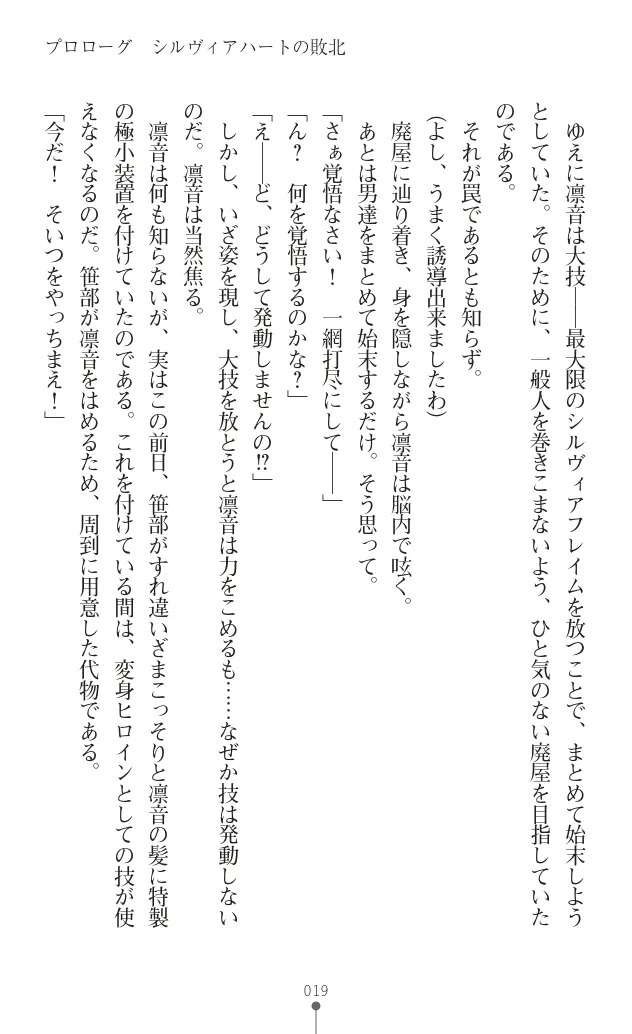 プロローグ　シルヴィアハートの敗北
　ゆえに凛音は大技――最大限のシルヴィアフレイムを放つことで、まとめて始末しよう
としていた。そのために、一般人を巻きこまないよう、ひと気のない廃屋を目指していた
のである。
　それが罠であるとも知らず。
（よし、うまく誘導出来ましたわ）
　廃屋に辿り着き、身を隠しながら凛音は脳内で呟く。
　あとは男達をまとめて始末するだけ。そう思って。
「さぁ覚悟なさい！　一網打尽にして――」
「ん？　何を覚悟するのかな？」
「え――ど、どうして発動しませんの!?」
　しかし、いざ姿を現し、大技を放とうと凛音は力をこめるも……なぜか技は発動しない
のだ。凛音は当然焦る。
　凛音は何も知らないが、実はこの前日、笹部がすれ違いざまこっそりと凛音の髪に特製
の極小装置を付けていたのである。これを付けている間は、変身ヒロインとしての技が使
えなくなるのだ。笹部が凛音をはめるため、周到に用意した代物である。
「今だ！　そいつをやっちまえ！」
019